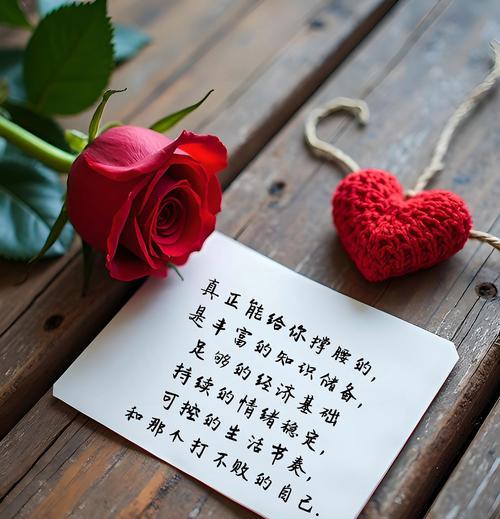 真正能给你撑腰的,
是丰富的知识储备,
足够的经济基础
持续的情绪稳定,
可控的生活节奏,
和那个打不败的自己.